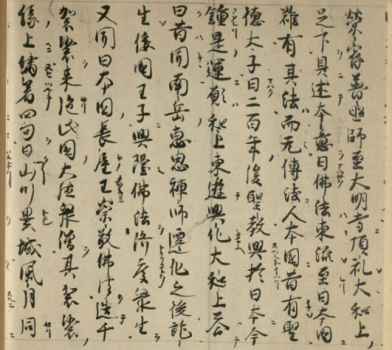 榮叡普照師至大明寺頂礼大和上
足下具述本意曰佛法東流至日本國
雖有其法而无傳法人本國昔有聖
德太子曰二百年後聖教興於日本今
鍾是運願和上東遊興化大和上答
曰昔聞南岳惠思禪師遷化之後託
生倭國王子興隆佛法濟度衆生
又聞日本國長屋王崇敬佛法造千
袈裟来施此國大德衆僧其袈裟
緣上繡着四句曰山川異域風月同